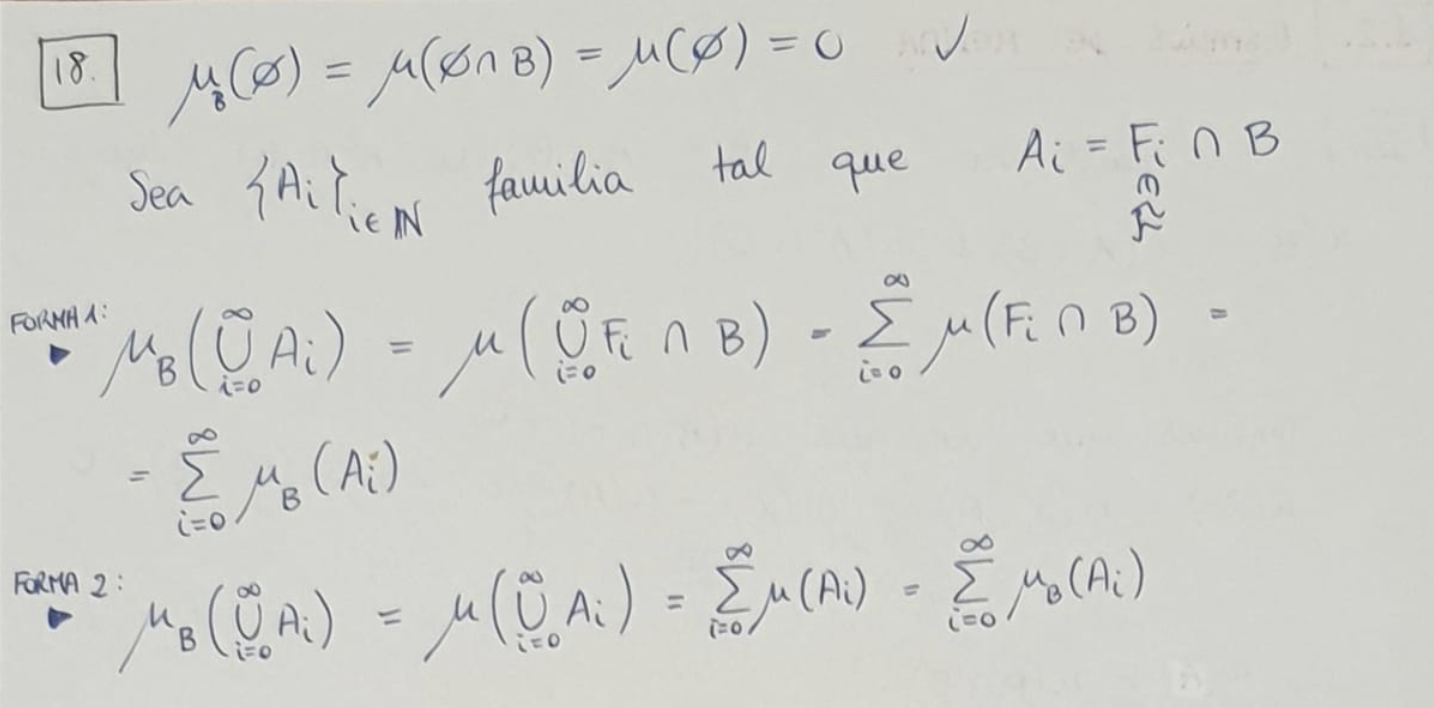 18. μ_B(∅) = μ(∅∩B) = μ(∅) = 0 ✓
Sea {Ai}i∈ℕ familia tal que Ai = Fi ∩ B
∈
ℱ
FORMA 1:
▸ μ_B(⋃_{i=0}^{∞} Ai) = μ(⋃_{i=0}^{∞} Fi ∩ B) = ∑_{i=0}^{∞} μ(Fi ∩ B) =
= ∑_{i=0}^{∞} μ_B(Ai)
FORMA 2:
▸ μ_B(⋃_{i=0}^{∞} Ai) = μ(⋃_{i=0}^{∞} Ai) = ∑_{i=0}^{∞} μ(Ai) = ∑_{i=0}^{∞} μ_B(Ai)